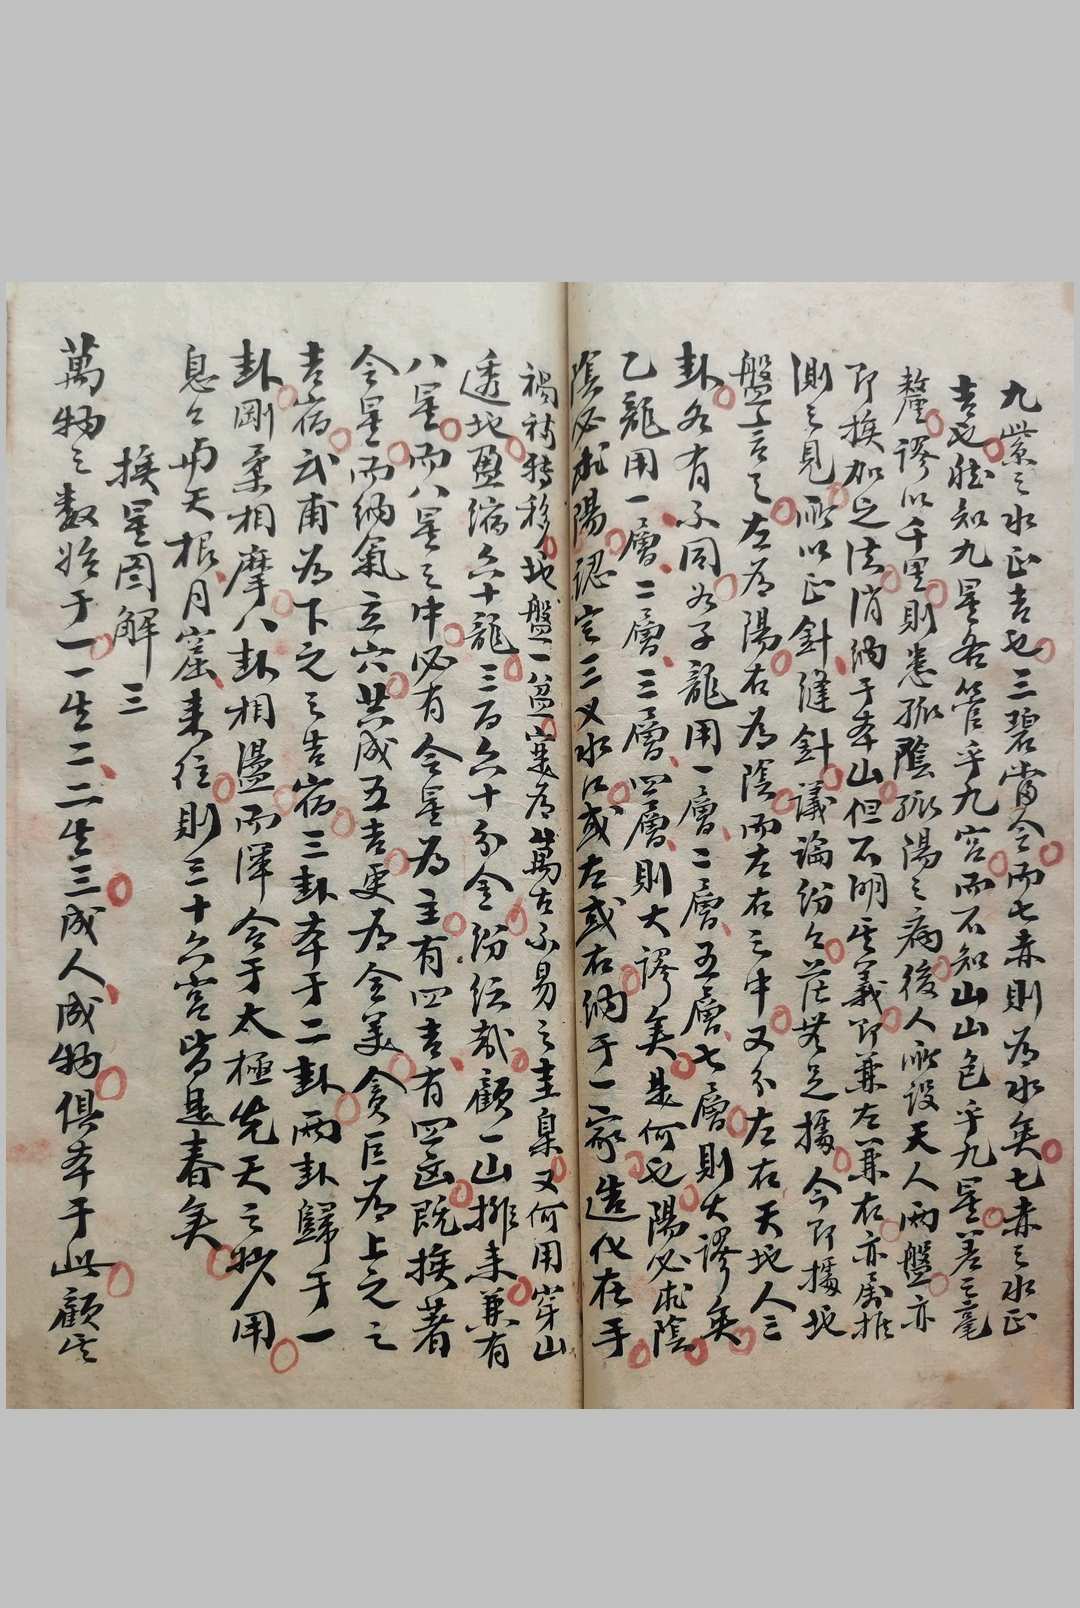 九紫之水正吉也三碧當令而七赤則為水矣七赤之水正
吉也雖知九星各管乎九宮而不知山山包乎九星差之毫
釐謬以千里則患孤陰孤陽之病後人所設天人兩盤亦
即換加之法消納于本山但不明其義即兼左兼右亦屬推
測之見所以正針縫針議論紛々茫無足據今即據地
盤上言之左為陽右為陰而左右之中又分左右天地人三
卦各有不同如子龍用一層二層五層七層則大謬矣
乙龍用一層二層三層四層則大謬矣是何也陽必求陰
陰必求陽認定三叉水口或左或右納于一家造化在手
禍福轉移地盤一盤實為萬古不易之圭臬又何用穿山
透地盈縮六十龍三百六十分金紛紜哉顧一山排來兼有
八星而八星之中必有令星為主有四吉有四凶既換著
令星而納氣立穴共成五吉更為全美貪巨為上元之
吉宿武甫為下元之吉宿三卦本于二卦兩卦歸于一
卦剛柔相摩八卦相盪而渾合于太極先天之妙用
息々與天根月窟來往則三十六宮皆是春矣
換星圖解三
萬物之數始于一一生二二生三成人成物俱本于此顧其